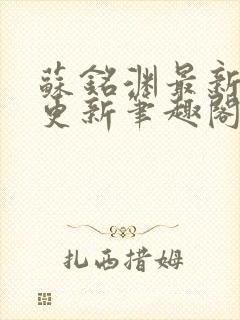 蘇銘渊最新
更新筆趣閣
扎西措姆